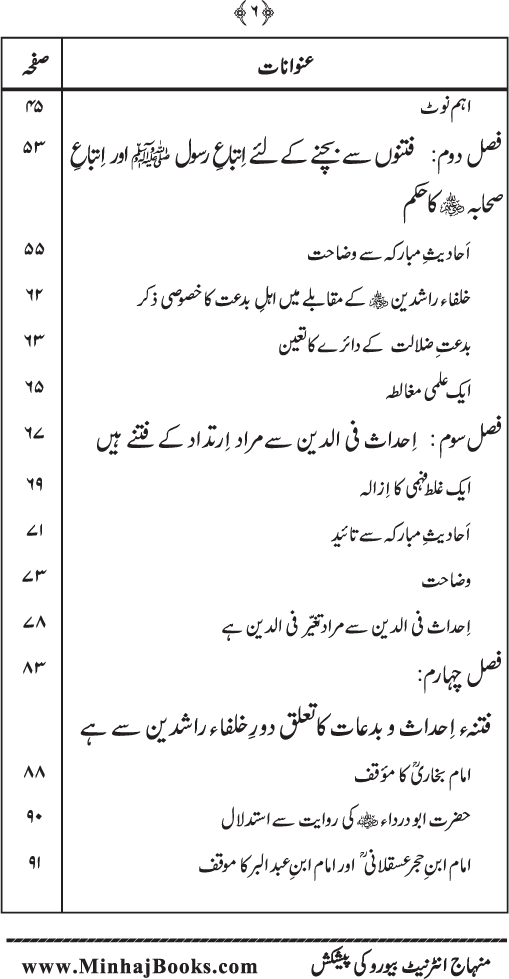 ﴿۶﴾
عنوانات صفحہ
اہم نوٹ ۴۵
فصل دوم: فتنوں سے بچنے کے لئے اِتباعِ رسول ﷺ اور اِتباعِ ۵۳
صحابہ ؓ کا حکم
اَحادیثِ مبارکہ سے وضاحت ۵۵
خلفاء راشدین ؓ کے مقابلے میں اہلِ بدعت کا خصوصی ذکر ۶۲
بدعتِ ضلالت کے دائرے کا تعین ۶۳
ایک علمی مغالطہ ۶۵
فصل سوم: اِحداث فی الدین سے مراد اِرتداد کے فتنے ہیں ۶۷
ایک غلط فہمی کا اِزالہ ۶۹
اَحادیثِ مبارکہ سے تائید ۷۱
وضاحت ۷۳
اِحداث فی الدین سے مراد تغیّر فی الدین ہے ۷۸
فصل چہارم: ۸۳
فتنہء اِحداث و بدعات کا تعلق دورِ خلفاء راشدین سے ہے
امام بخاریؒ کا مؤقف ۸۸
حضرت ابو درداء ؓ کی روایت سے استدلال ۹۰
امام ابنِ حجر عسقلانیؒ اور امام ابنِ عبد البر کا موقف ۹۱
منہاج انٹرنیٹ بیورو کی پیشکش www.MinhajBooks.com